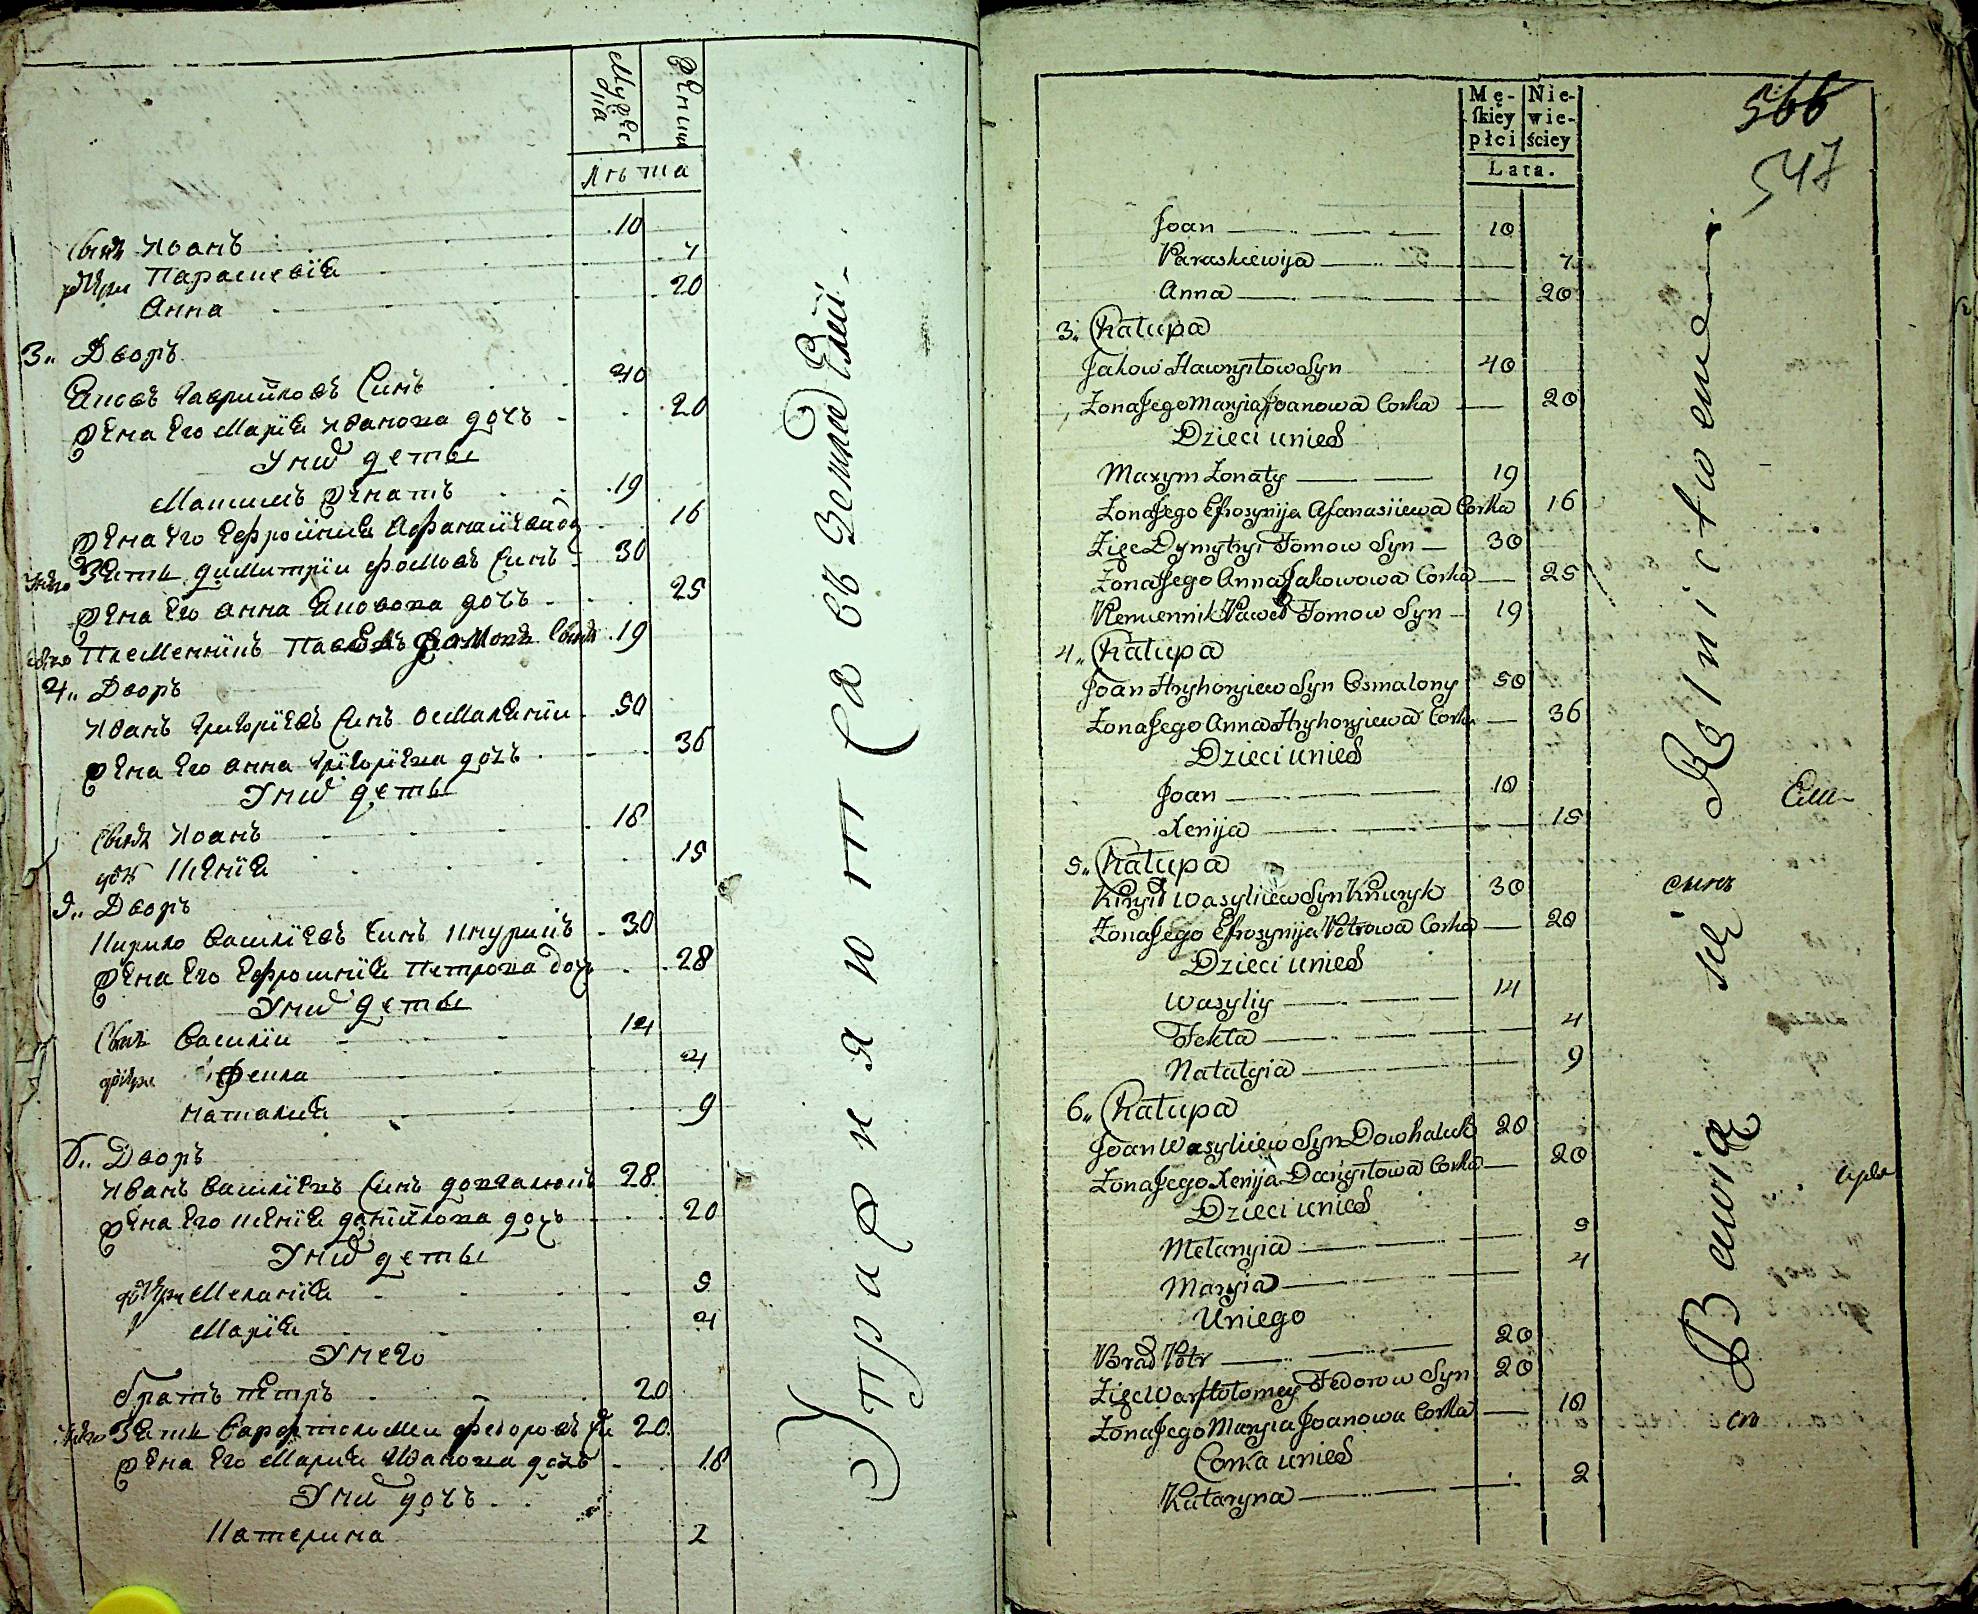 Мужеска
Женска
Лѣта
Сынъ Иоанъ 10
дщери Параскевїя 7
Анна 20
3,, Дворъ
Яковъ Гаврииловъ Синъ 40
Жена Его Марїя Иванова дочъ 20
У нихъ деты
Максимъ Женатъ 19
Жена Его Ефросиния Афанасиева до 16
У него Зять Димитрїи Фомовъ Синъ 30
Жена Его Анна Яковова дочъ 25
У него Племенникъ Павелъ Фомовъ Сынъ 19
4,, Дворъ
Иванъ Григорїевъ Синъ Осмалении 50
Жена Его Анна Григорїева дочъ 36
У нихъ деты
Сынъ Иоанъ 18
доч Ксенїя 15
5,, Дворъ
Кирило Василїевъ Синъ Кнурикъ 30
Жена Его Ефросинїя Петрова доч 28
У нихъ деты
Сынъ Василїи 14
дщери Фекла 4
Наталия 9
6,, Дворъ
Иванъ Василїевъ Синъ Довгалюкъ 28
Жена Его Ксенїя Даниилова дочъ 20
У нихъ деты
дщери Меланїя 5
Марїя 4
У него
братъ Петръ 20
У него Зять Варфтоломеи Федоровъ Си 20
Жена Его Мария Иванова дочъ 18
У них дочъ
Катерина 2
Упражняются въ Земледелїи
Mę- Nie-
skiey wie-
płci ściey
Lata.
566
547
Joan 10
Paraskiewija 7
Anna 20
3,, Chałupa
Jakow Hawryłow Syn 40
Zona Jego Maryia Joanowa Corka 20
Dzieci unich
Maxym Zonaty 19
Zona Jego Efrosynija Afanasiiewa Corka 16
Zięc Dymytryi Fomow Syn 30
Zona Jego Anna Jakowowa Corka 25
Plemiennik Paweł Fomow Syn 19
4,, Chałupa
Joan Hryhoryiew Syn Osmalony 50
Zona Jego Anna Hryhoryiewa Corka 36
Dzieci unich
Joan 18
Xenija 15
5,, Chałupa
Kirył Wasyliiew Syn Knuryk 30
Zona Jego Efrosynija Potrowa Corka 20
Dzieci unich
Wasyliy 14
Fekla 4
Natalyia 9
6,, Chałupa
Joan Wasyliiew Syn Dowhaluk 28
Zona Jego Xenija Danyiłowa Corka 20
Dzieci unich
Melanyia 5
Maryia 4
Uniego
Brad Potr 20
Zięc Warftołomey Fedorow Syn 20
Zona Jego Maryia Joanowa Corka 18
Corka unich
Kataryna 2
Bawią się Rolnictwem